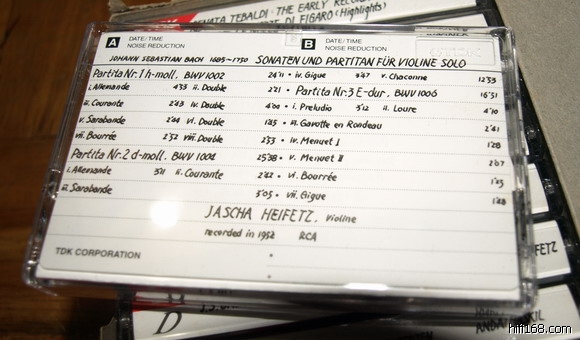 RENATA TEBALDI - THE EARLY RECOR
DI FIGARO (Highlights)
A DATE/TIME B DATE/TIME
NOISE REDUCTION NOISE REDUCTION
TDK
JOHANN SEBASTIAN BACH 1685-1750 SONATEN UND PARTITAN FÜR VIOLINE SOLO
Partita Nr.1 h-moll, BWV 1002 24'11 • iv. Gigue 3'47 v. Chaconne 12'53
i. Allemande 4'33 ii. Double 2'21 • Partita Nr.3 E-dur, BWV 1006 16'51
ii. Courante 2'43 iv. Double 2'01 • i. Preludio 3'12 ii. Loure 4'10
v. Sarabande 2'44 vi. Double 1'45 • iii. Gavotte en Rondeau 2'41
vii. Bourrée 2'32 viii. Double 2'53 • iv. Menuet I 1'28
Partita Nr.2 d-moll, BWV 1004 25'38 • v. Menuet II 2'07
i. Allemande 3'11 ii. Courante 2'42 • vi. Bourrée 1'25
iii. Sarabande 3'05 • vii. Gigue 1'48
JASCHA HEIFETZ, Violine
recorded in 1952 RCA
TDK CORPORATION
FETZ
D
hifi168.com